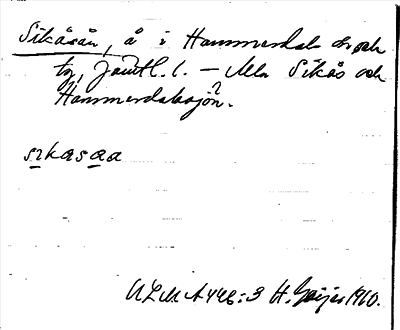 Sikåsån, å i Hammerdals sn och
tg, Jämtl. l. – Mln Sikås och
Hammerdalssjön.
sikasaa
ULMA 446:3 H. Geijer 1910.